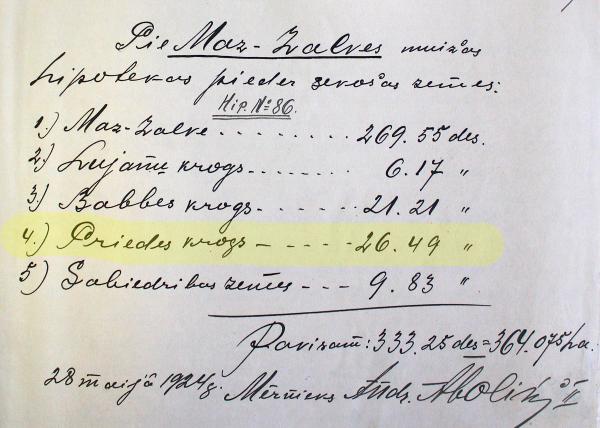 Pie Maz-Zalves muižas
hipotekas pieder sekošas zemes:
Hip. № 86.
1.) Maz-Zalve . . . . . . . . 269.55 des.
2.) Leijaņu krogs . . . . . . . 6.17 "
3.) Babbes krogs . - . . . . . 21.21 "
4.) Priedes krogs - - - - - - 26.49 "
5.) Sabiedribas zemes - - - 9.83 "
Pavisam: 333.25 des = 364.075 ha.
28 maijā 1924g. Mērnieks Andr. Aboliņš II